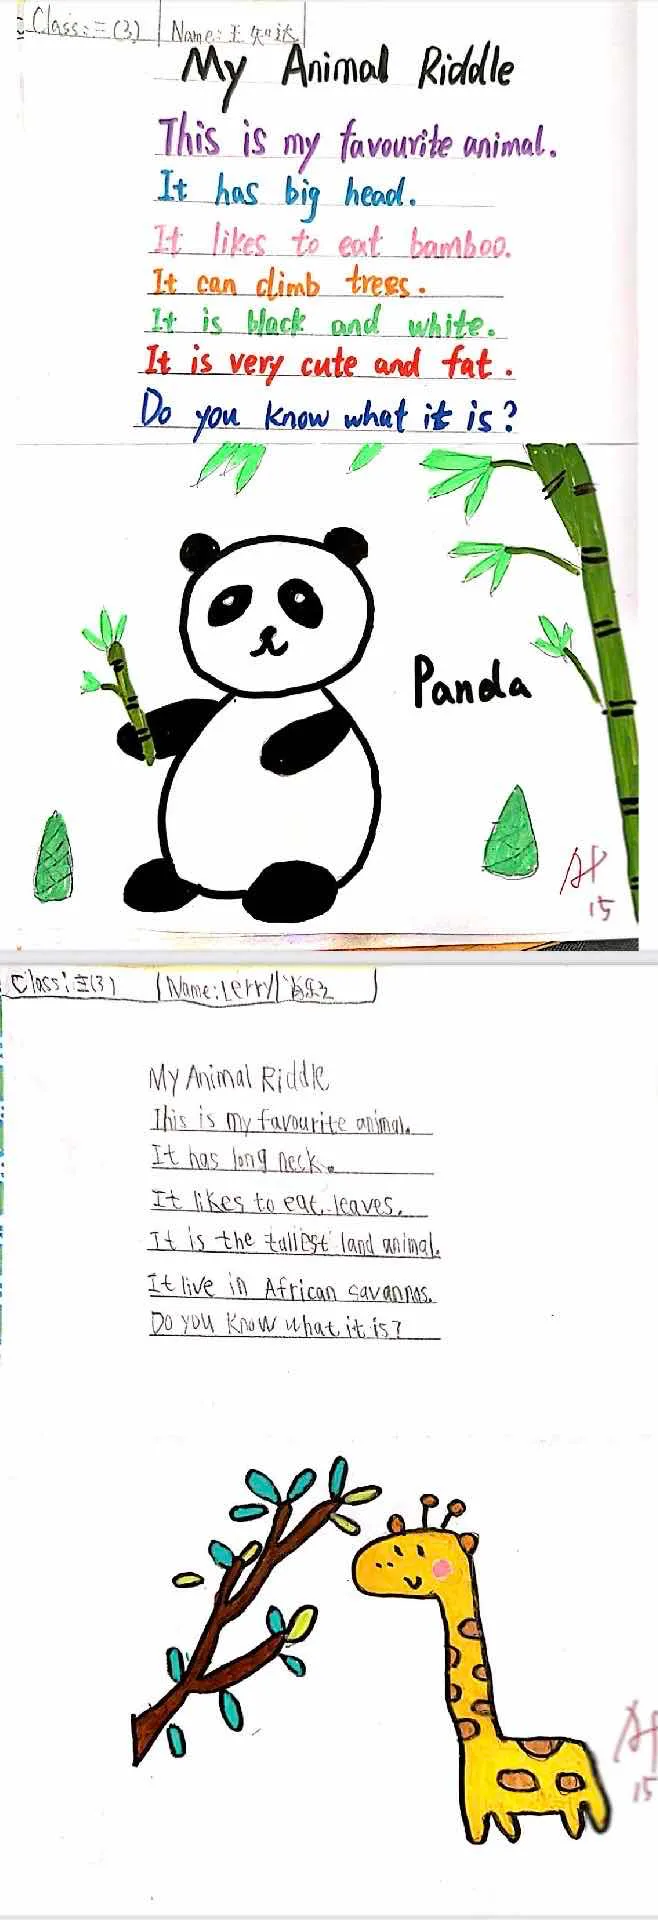 Class: 三(3) Name: 王知达
My Animal Riddle
This is my favourite animal.
It has big head.
It likes to eat bamboo.
It can climb trees.
It is black and white.
It is very cute and fat.
Do you know what it is?
Panda
15
Class: 三(3) Name: Lerry
My Animal Riddle
This is my favourite animal.
It has long neck.
It likes to eat leaves.
It is the tallest land animal.
It live in African savannas.
Do you know what it is?
15